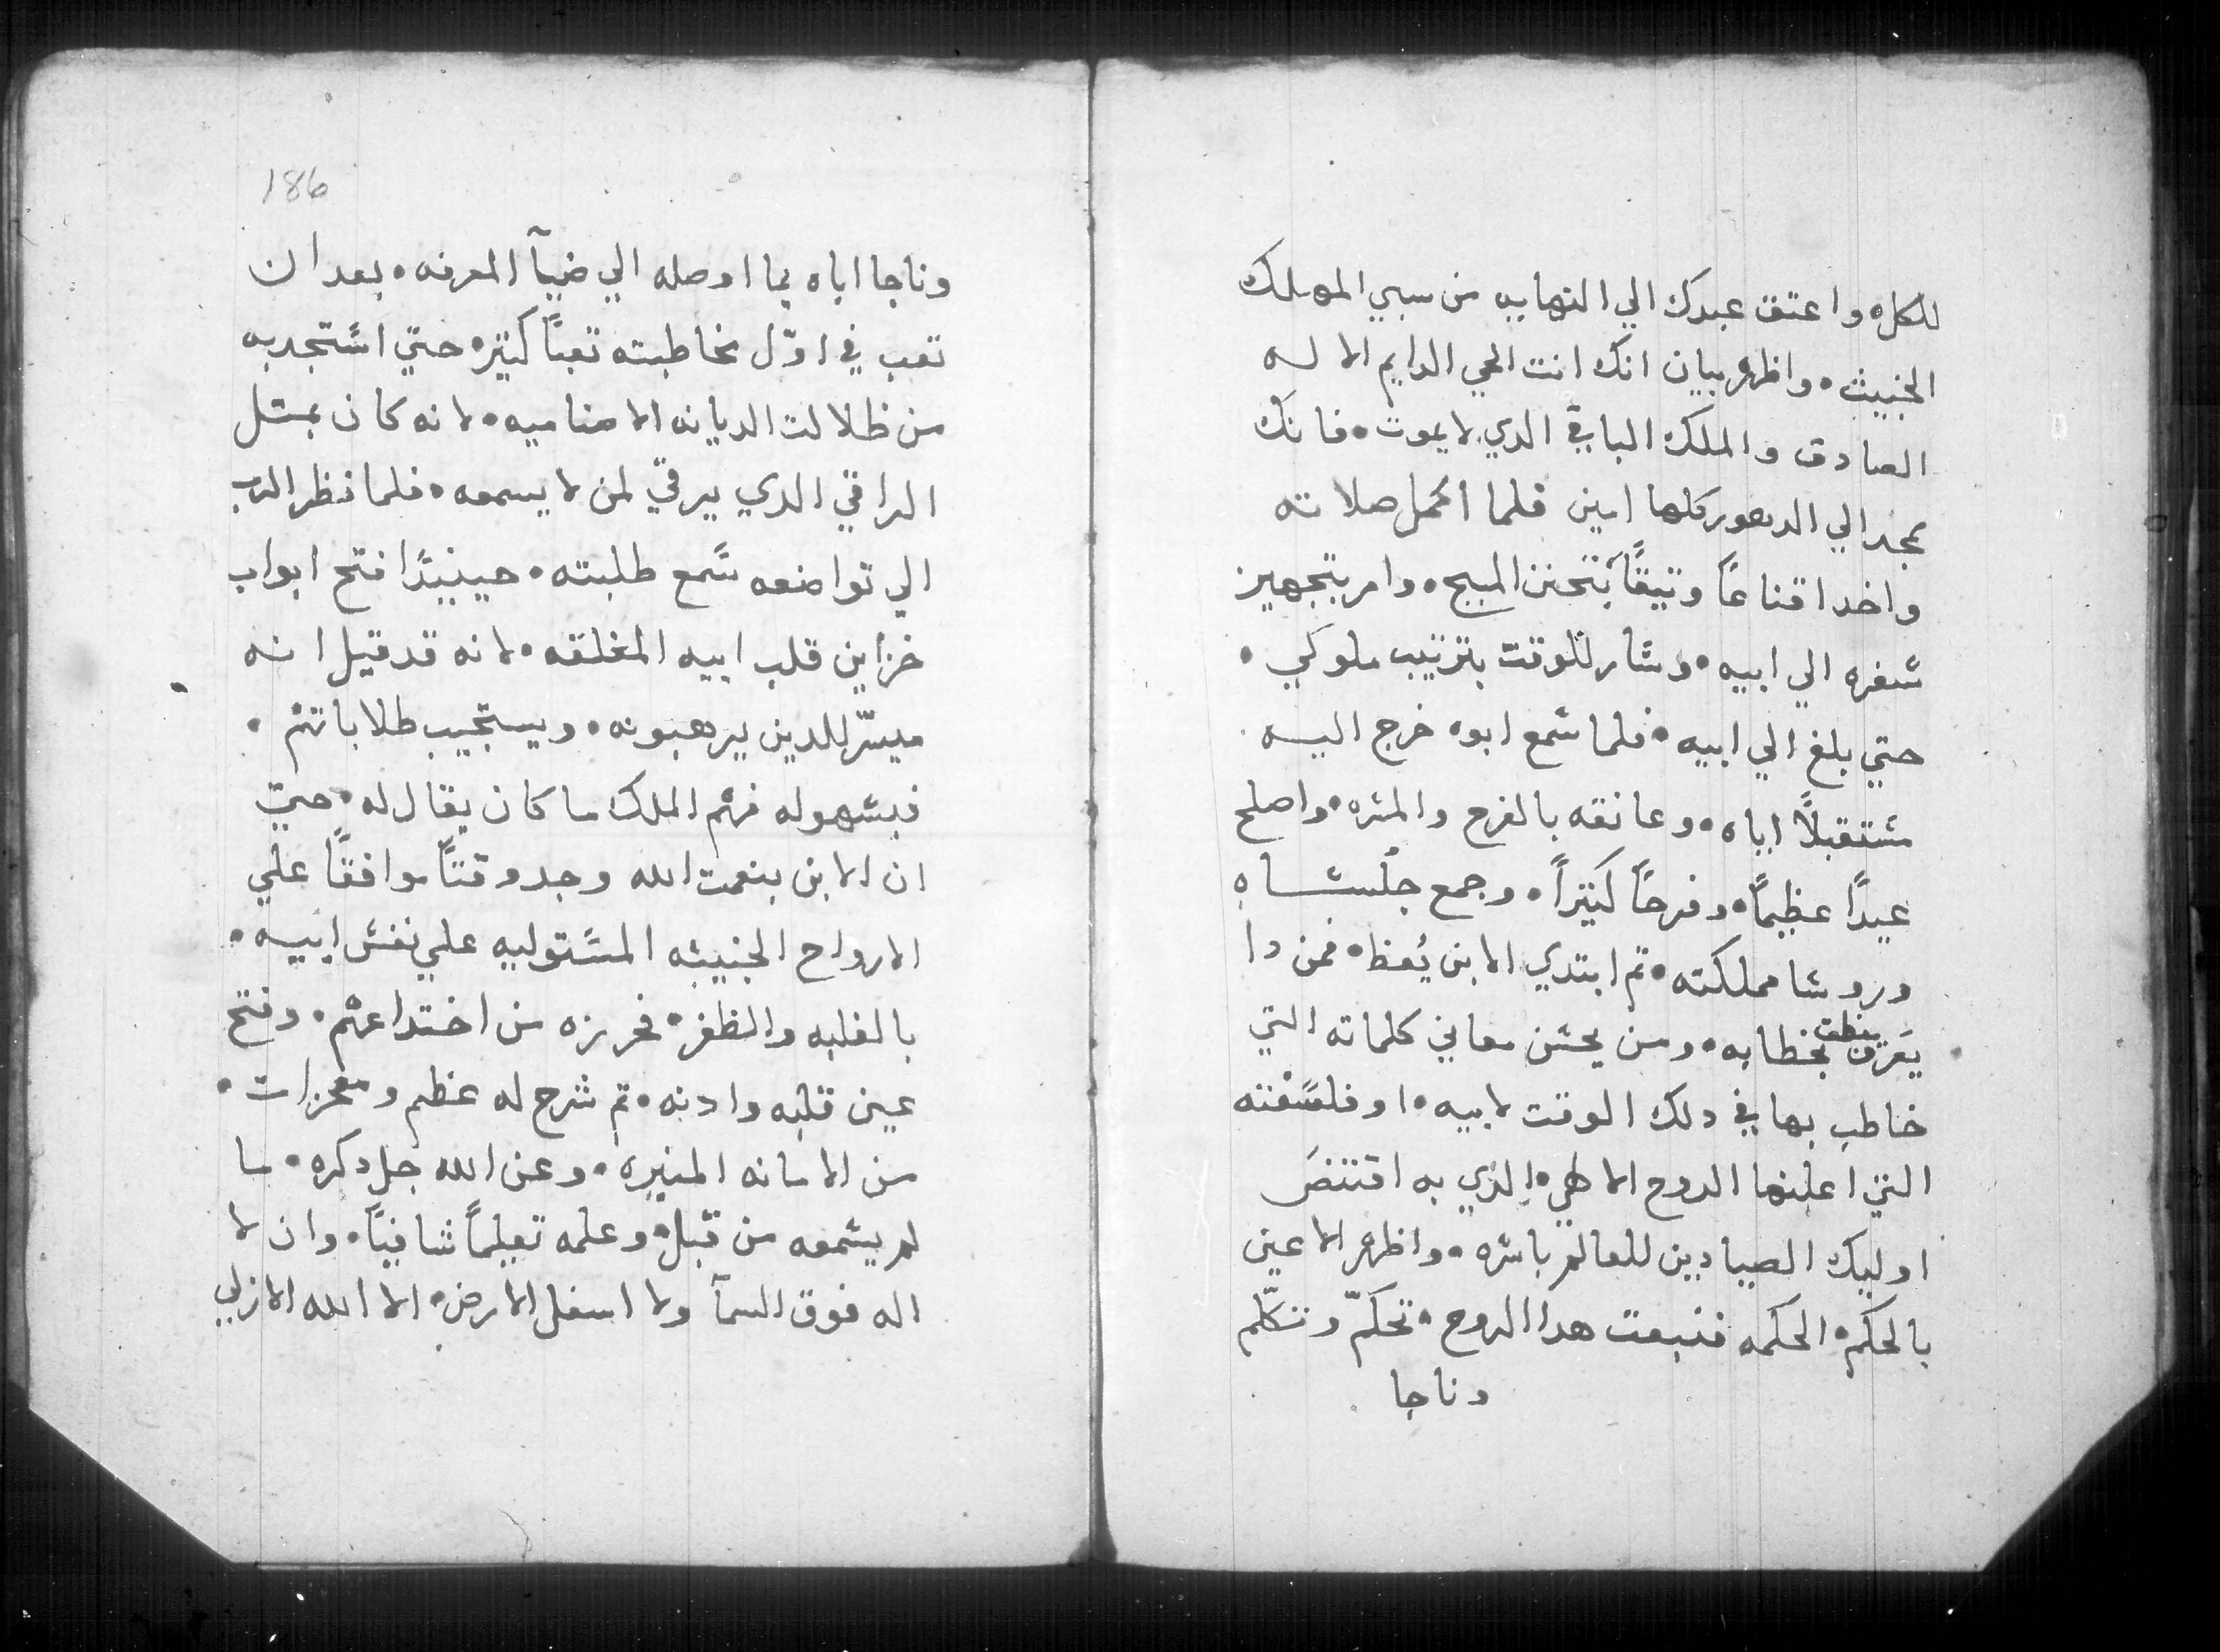 للكل۰ واعتق عبدك الي النهايه من سبي المهلك
الخبيث۰ واظهر ببيان انك انت الحي الدايم الاله
الصادق والملك الباقي الدي لا يموت۰ فانك
مجد الي الدهور كلها امين فلما اكمل صلاته
واخد اقناعًا وتيقًا بتحنن المسيح۰ وامر بتجهيز
سفره الي ابيه۰ وسار للوقت بترتيب ملوكي۰
حتي بلغ الي ابيه۰ فلما سمع ابوه خرج اليه
مستقبلًا اياه۰ وعانقه بالفرح والمسره۰ واصلح
عيدًا عظيمًا۰ وفرحًا كتيرًا۰ وجمع جلساه
وروسا مملكته۰ تم ابتدي الابن يُعظ۰ فمن دا
ينطق
يعرف بخطابه۰ ومن يحسن معاني كلماته التي
خاطب بها في دلك الوقت لابيه۰ او فلسفته
التي اعلنها الروح الالهي۰ الدي به اقتنص
اوليك الصيادين للعالم باسره۰ واظهر الاعين
بالحكم۰ الحكمه فنبعت هدا الروح۰ تحكمّ وتكلّم
وناجا
186
وناجا اباه بما اوصله الي ضيآ المعرفه۰ بعد ان
تعب في اوّل مخاطبته تعبًا كتيره حتي استجدبه
من ظلالت الديانه الاصناميه۰ لانه كان بمتل
الراقي الدي يرقي لمن لا يسمعه۰ فلما نظر الرب
الي تواضعه سمع طلبته۰ حينيدًا فتح ابواب
خزاين قلب ابيه المغلقه۰ لانه قد قيل انه
ميسّر للدين يرهبونه۰ ويستجيب طلاباتهم۰
فبسهوله فهم الملك ما كان يقال له۰ حتي
ان الابن بنعمت الله وجد وقتًا موافقًا علي
الارواح الخبيثه المستوليه علي نفس ابيه۰
بالغلبه والظفر۰ فحرزه من اختداعهم۰ وفتح
عين قلبه وادنه۰ تم شرح له عظم ومعجزات۰
من الامانه المنيره۰ وعن الله جل دكره۰ ما
لم يسمعه من قبل۰ وعلمه تعليمًا شافيًا۰ وان لا
اله فوق السمآ ولا اسفل الارض۰ الا الله الازلي